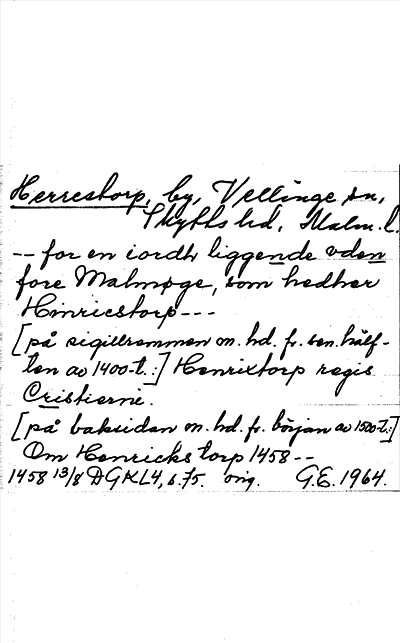 Herrestorp, by, Vellinge sn,
Skytts hd, Malm. l.
-- for en iordh liggende vden
fore Malmøge, som hedher
Hinricstorp ---
[på sigillremmen m. hd. fr. sen. hälf-
ten av 1400-t.:] Henrixtorp regis
Cristierni.
[på baksidan m. hd. fr. början av 1500-t.:]
Om Henrickstorp 1458 --
1458 13/8 DGKL4, s. 75. orig. G.E. 1964.